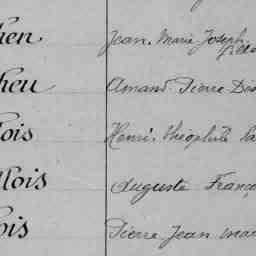 hen Jean. Marie Joseph.
heu Amand Pierre Dés
lois Henri. théophile
llois Auguste Franço
ois Pierre Jean Mar